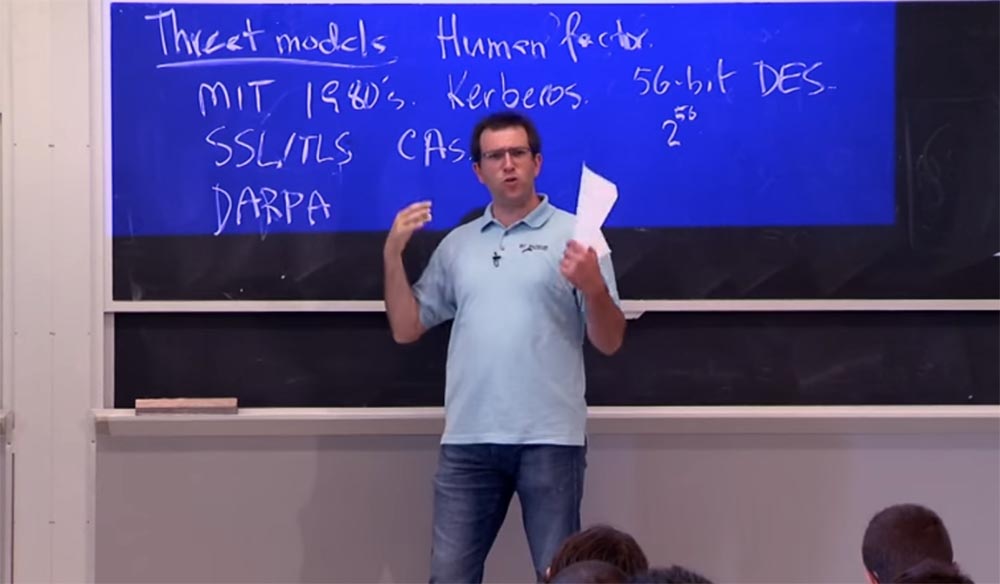 Threat models. Human factor.
MIT 1980's. Kerberos. 56-bit DES.
2^56
SSL/TLS CAs.
DARPA